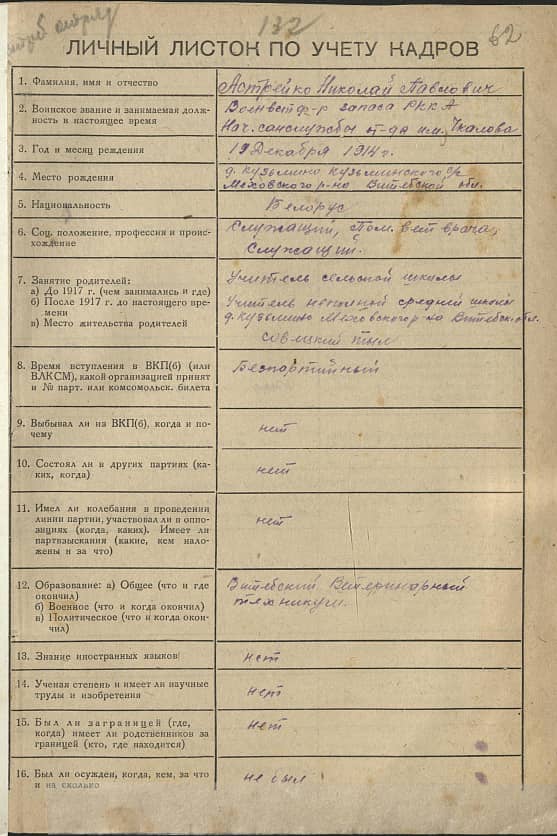 132
62
ЛИЧНЫЙ ЛИСТОК ПО УЧЕТУ КАДРОВ
1. Фамилия, имя и отчество
Астрейко Николай Павлович
2. Воинское звание и занимаемая долж-
ность в настоящее время
Военветф-р запаса РККА
Нач. санслужбы от-да им. Чкалова
3. Год и месяц рождения
19 Декабря 1914 г.
4. Место рождения
д. Кузьмино Кузьминского с/с
Меховского р-на Витебской обл.
5. Национальность
Белорус
6. Соц. положение, профессия и проис-
хождение
Служащий, Пом. вет врача,
Служащий.
7. Занятие родителей:
а) До 1917 г. (чем занимались и где)
б) После 1917 г. до настоящего вре-
мени
в) Место жительства родителей
Учитель сельской школы
Учитель неполной средней школы
д. Кузьмино Меховского р-на Витебск. обл.
совецкий тыл
8. Время вступления в ВКП(б) (или
ВЛКСМ), какой организацией принят
и № парт. или комсомольск. билета
Беспартийный
9. Выбывал ли из ВКП(б), когда и по-
чему
нет
10. Состоял ли в других партиях (ка-
ких, когда)
нет
11. Имел ли колебания в проведении
линии партии, участвовал ли в оппо-
зициях (когда, каких). Имеет ли
партвзыскания (какие, кем нало-
жены и за что)
нет
12. Образование: а) Общее (что и где
окончил)
б) Военное (что и когда окончил)
в) Политическое (что и когда окон-
чил)
Витебский Ветеринарный
техникум.
13. Знание иностранных языков
нет
14. Ученая степень и имеет ли научные
труды и изобретения
нет
15. Был ли заграницей (где,
когда) имеет ли родственников за
границей (кто, где находится)
нет
16. Был ли осужден, когда, кем, за что
и на сколько
не был